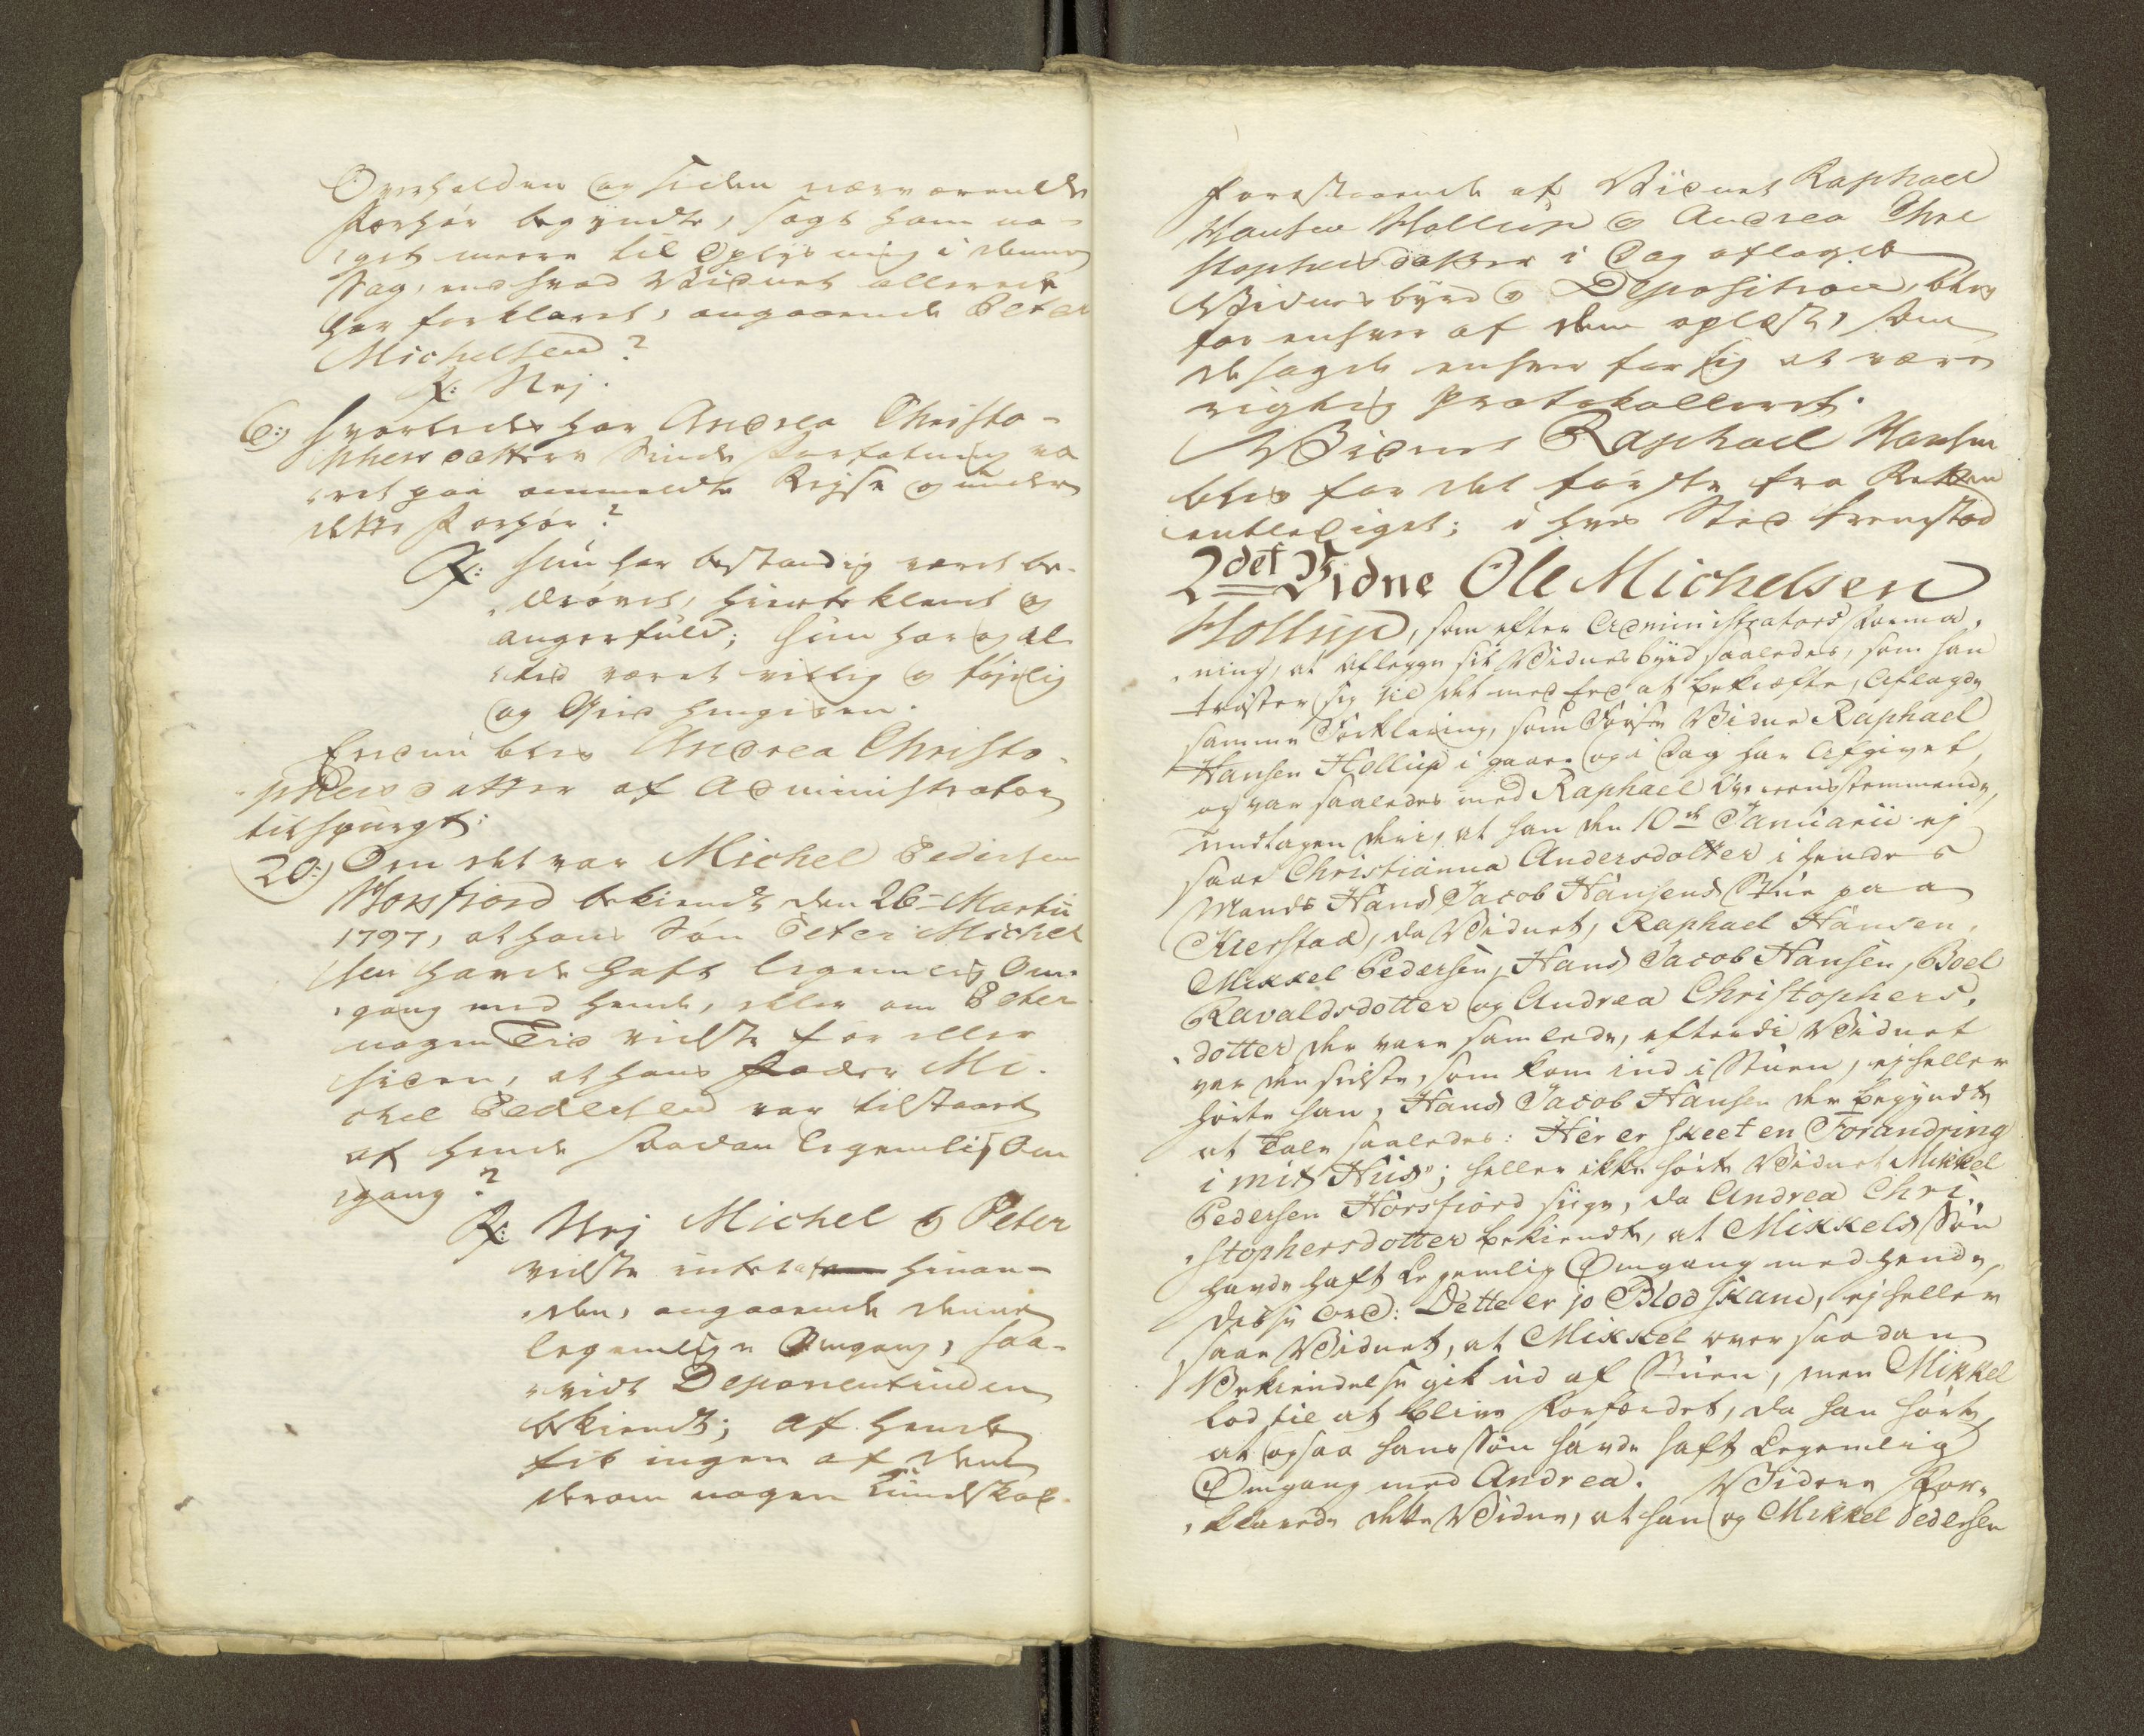 Overhalden og siden nærværende
Forhør begyndte, sagt ham no-
get meere til Oplysning i denne
Sag, end hvad Vidnet allerede
har forklaret, angaaende Peter
Michelsen?
R: Nej.
6:) Hvorledes har Andrea Christo-
phersdatters Sinds Forfatning væ
ret paa ommeldte Reyse og under
dette Forhør?
R: Hun har bestandig været be-
drøvet, hierteklemt og
angerfuld; hun har og al
tid været villig og føjelig
og Gud hengiven.
Endnu blev Andrea Christo-
phersdatter af Administrator
tilspurgt:
20:) Om det var Michel Pedersen
Horsfiord bekiendt den 26 Martii
1797, at hans Søn Peter Michel
sen havde haft legemlig Om-
gang med hende, eller om Peter
nogen Tid vidste før eller
siden, at hans Fader Mi-
chel Pedersen var tilstaaet
af hende saadan legemlig Om
gang?
R: Nej Michel og Peter
vidste intet af hinan-
den, angaaende denne
legemlige Omgang, saa-
vidt Deponentinden
bekiendt; af hende
fik ingen af dem
derom nogen Kundskab.
forestaaende af Vidnet Raphael
Hansen Hollup og Andrea Chri
stophersdatter i Dag aflagde
Vidnesbyrd og Deposition, blev
for enhver af dem oplæst, som
de sagde enhver for sig at være
rigtig protokolleret.
Vidnet Raphael Hansen
blev for det første fra Retten
entlediget; i hvis Sted fremstod
2det Vidne Ole Michelsen
Hollup, som efter Administrators Forma-
ning, at aflegge sit Vidnesbyrd saaledes, som han
trøster sig til det med Eed at bekræfte, aflagde
samme Forklaring, som Første Vidne Raphael
Hansen Hollup i gaar og i Dag har Afgivet,
og var saaledes med Raphael overeensstemmende,
undtagen deri, at han den 10de Januarii ej
saae Christianna Andersdotter i hendes
Mands Hans Jacob Hansens Stue paa
Kierstad, da Vidnet, Raphael Hansen,
Mikkel Pedersen, Hans Jacob Hansen, Boel
Ravaldsdotter og Andrea Christophers-
dotter der vare samlede, efterdi Vidnet
var den sidste, som kom ind i Stuen, ej heller
hørte han, Hans Jacob Hansen der begyndte
at tale saaledes: Her er skeet en Forandring
i mit Huus"; heller ikke hørte Vidnet Mikkel
Pedersen Horsfiord sige, da Andrea Chri-
stophersdotter bekiendte, at Mikkels Søn
havde haft Legemlig Omgang med hende,
disse Ord: Dette er jo Blodskam, ej heller
saae Vidnet, at Mikkel over saadan
Bekiendelse gik ud af Stuen, men Mikkel
lod til at blive Forfærdet, da han hørte,
at ogsaa hans Søn havde haft Legemlig
Omgang med Andrea. Videre For-
klarede dette Vidne, at han og Mikkel Pedersen